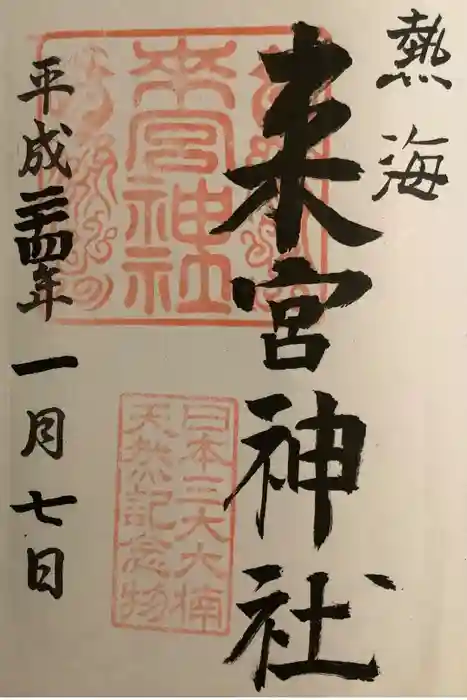 熱海
来宮神社
来宮神社
日本三大大楠
天然記念物
平成二十四年
一月七日